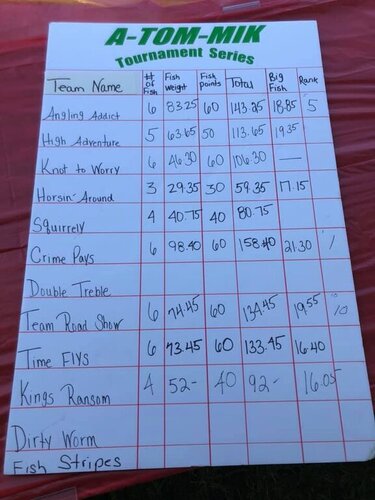 A-TOM-MIK
Tournament Series
Team Name # of Fish Fish Weight Fish Points Total Big Fish Rank
Angling Addict 6 83.25 60 143.25 18.85 5
High Adventure 5 63.65 50 113.65 19.35
Knot to Worry 6 46.30 60 106.30 —
Horsin' Around 3 29.35 30 59.35 17.15
Squirrely 4 40.75 40 80.75
Crime Pays 6 98.40 60 158.40 21.30 1
Double Treble
Team Road Show 6 74.45 60 134.45 19.55 10
Time Flys 6 73.45 60 133.45 16.40
Kings Ransom 4 52- 40 92- 16.05
Dirty Worm
Fish Stripes